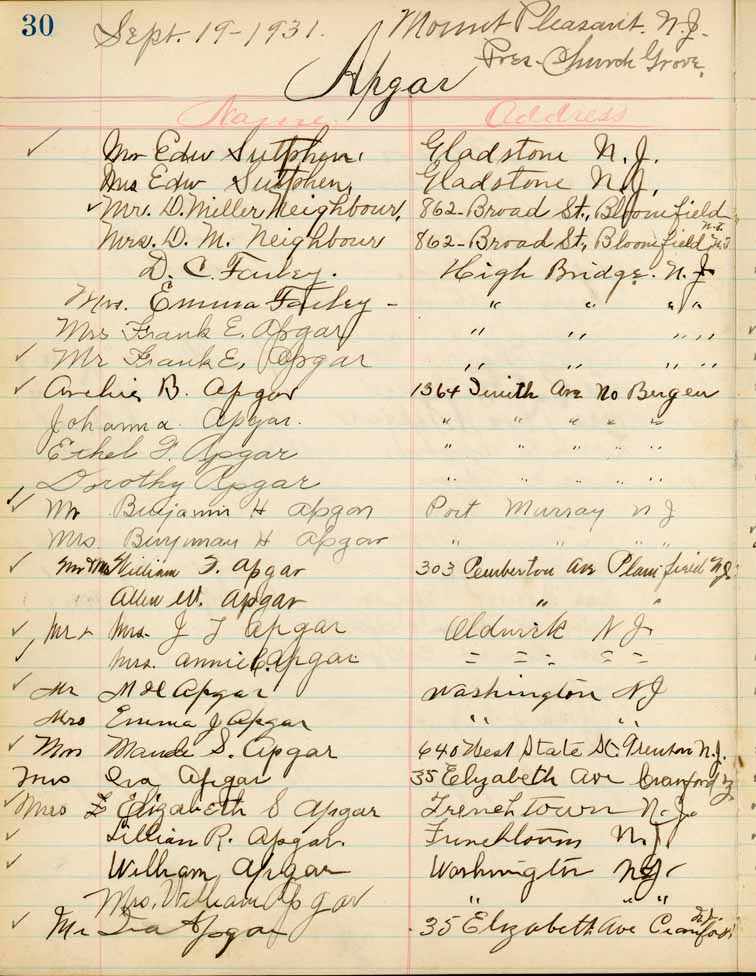 30 Sept. 19-1931. Mount Pleasant. N.J.
Pres. Church Grove.
Apgar
Name Address
✓ Mr Edw Sutphen, Gladstone N.J.
Mrs Edw Sutphen, Gladstone N.J.
✓ Mr. D. Miller Neighbour, 862-Broad St., Bloomfield N.J.
Mrs. D. M. Neighbour 862-Broad St., Bloomfield N.J.
D. C. Farley. High Bridge. N.J.
Mrs. Emma Farley - " " " "
Mrs Frank E. Apgar " " " "
✓ Mr Frank E. Apgar " " " "
✓ Archie B. Apgar 1364 Ave No Bergen
Johanna Apgar. " " " " "
Ethel F. Apgar " " " " "
Dorothy Apgar " " " " "
✓ Mr Benjamin H Apgar Port Murray N J
Mrs Benjman H Apgar " " " "
✓ Mr & Mrs William F. Apgar 303 Pemberton Ave Plainfield N.J.
Allen W. Apgar " "
✓ Mr + Mrs. J Apgar Oldwick N J
✓ Mrs. Annie C. Apgar " " " " "
✓ Mr M H Apgar Washington NJ
Mrs Emma J Apgar " "
✓ Mrs Maude S. Apgar 640 West State St. Trenton N.J.
Mrs Ira Apgar 35 Elyzabeth Ave Cranford
✓ Mrs Elizabeth S Apgar Frenchtown N.J.
✓ Lillian R. Apgar. Frenchtown N.J.
✓ William Apgar Washington NJ.
Mrs. William Apgar " " "
✓ Mr Ira Apgar 35 Elizabeth Ave Cranford N.J.